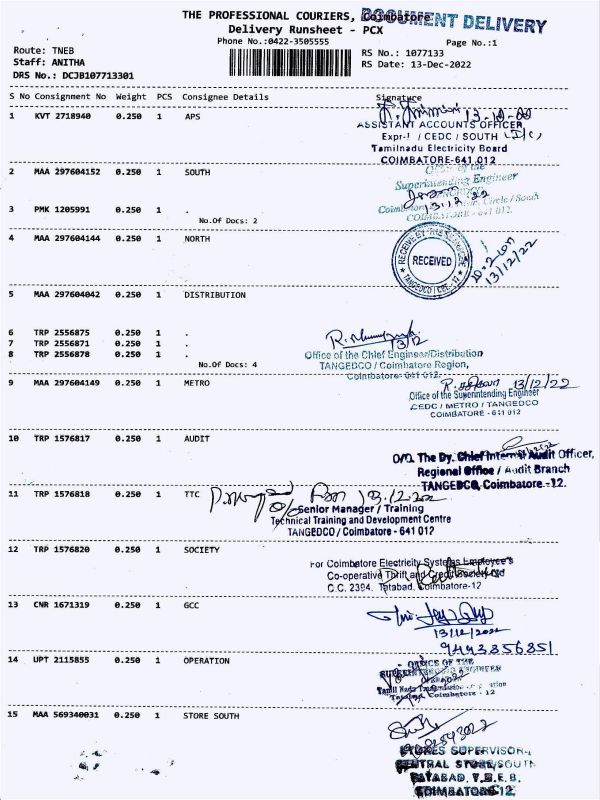 THE PROFESSIONAL COURIERS, Coimbatore
DOCUMENT DELIVERY
Delivery Runsheet - PCX
Phone No.:0422-3505555
Page No.:1
Route: TNEB
RS No.: 1077133
Staff: ANITHA
RS Date: 13-Dec-2022
DRS No.: DCJB107713301
S No Consignment No Weight PCS Consignee Details Signature
1 KVT 2718940 0.250 1 APS
ASSISTANT ACCOUNTS OFFICER
Expr-I / CEDC / SOUTH
Tamilnadu Electricity Board
COIMBATORE-641 012
2 MAA 297604152 0.250 1 SOUTH
Office of the
Superintending Engineer
TANGEDCO
Circle / South
COIMBATORE - 641 012.
3 PMK 1205991 0.250 1 .
No.Of Docs: 2
4 MAA 297604144 0.250 1 NORTH
RECEIVED
TANGEDCO / CBE-12
13/12/22
5 MAA 297604042 0.250 1 DISTRIBUTION
6 TRP 2556875 0.250 1 .
7 TRP 2556871 0.250 1 .
8 TRP 2556878 0.250 1 .
No.Of Docs: 4
13/12
Office of the Chief Engineer/Distribution
TANGEDCO / Coimbatore Region,
Coimbatore- 641 012.
9 MAA 297604149 0.250 1 METRO
13/12/22
Office of the Superintending Engineer
CEDC / METRO / TANGEDCO
COIMBATORE - 641 012
10 TRP 1576817 0.250 1 AUDIT
O/O. The Dy. Chief Internal Audit Officer,
Regional Office / Audit Branch
TANGEDCO, Coimbatore.-12.
11 TRP 1576818 0.250 1 TTC
13.12.2022
Senior Manager / Training
Technical Training and Development Centre
TANGEDCO / Coimbatore - 641 012
12 TRP 1576820 0.250 1 SOCIETY
For Coimbatore Electricity Systems Employee's
Co-operative Thrift and Credit Society Ltd
C.C. 2394. Tatabad, Coimbatore-12
13 CNR 1671319 0.250 1 GCC
13/12/2022
9443856851
14 UPT 2115855 0.250 1 OPERATION
OFFICE OF THE
SUPERINTENDING ENGINEER
Tamil Nadu Transmission
Tatabad, Coimbatore - 12
15 MAA 569340031 0.250 1 STORE SOUTH
STORES SUPERVISOR-I
CENTRAL STORE/SOUTH
TATABAD, T.N.E.B.
COIMBATORE-12.